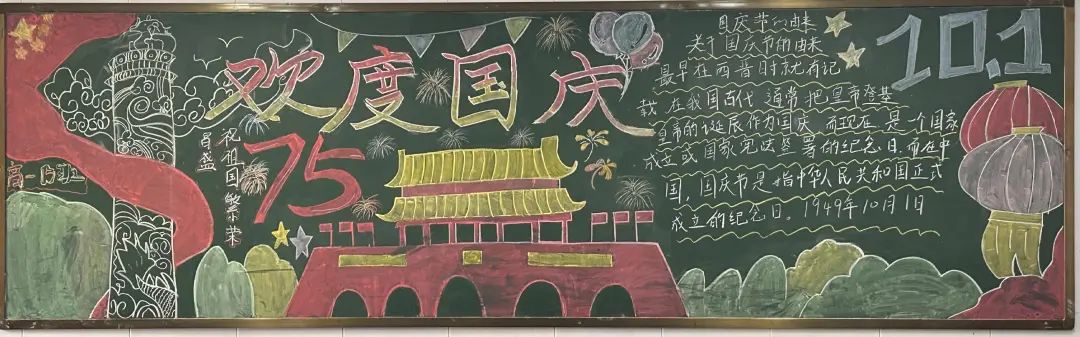 欢度国庆
75
祝祖国繁荣
昌盛
高一13班
10.1
国庆节的由来
关于国庆节的由来
最早在西晋时就有记
载,在我国古代通常把皇帝登基
皇帝的诞辰作为国庆而现在是一个国家
成立或国家宪法签署的纪念日.而在中
国,国庆节是指中华人民共和国正式
成立的纪念日。1949年10月1日